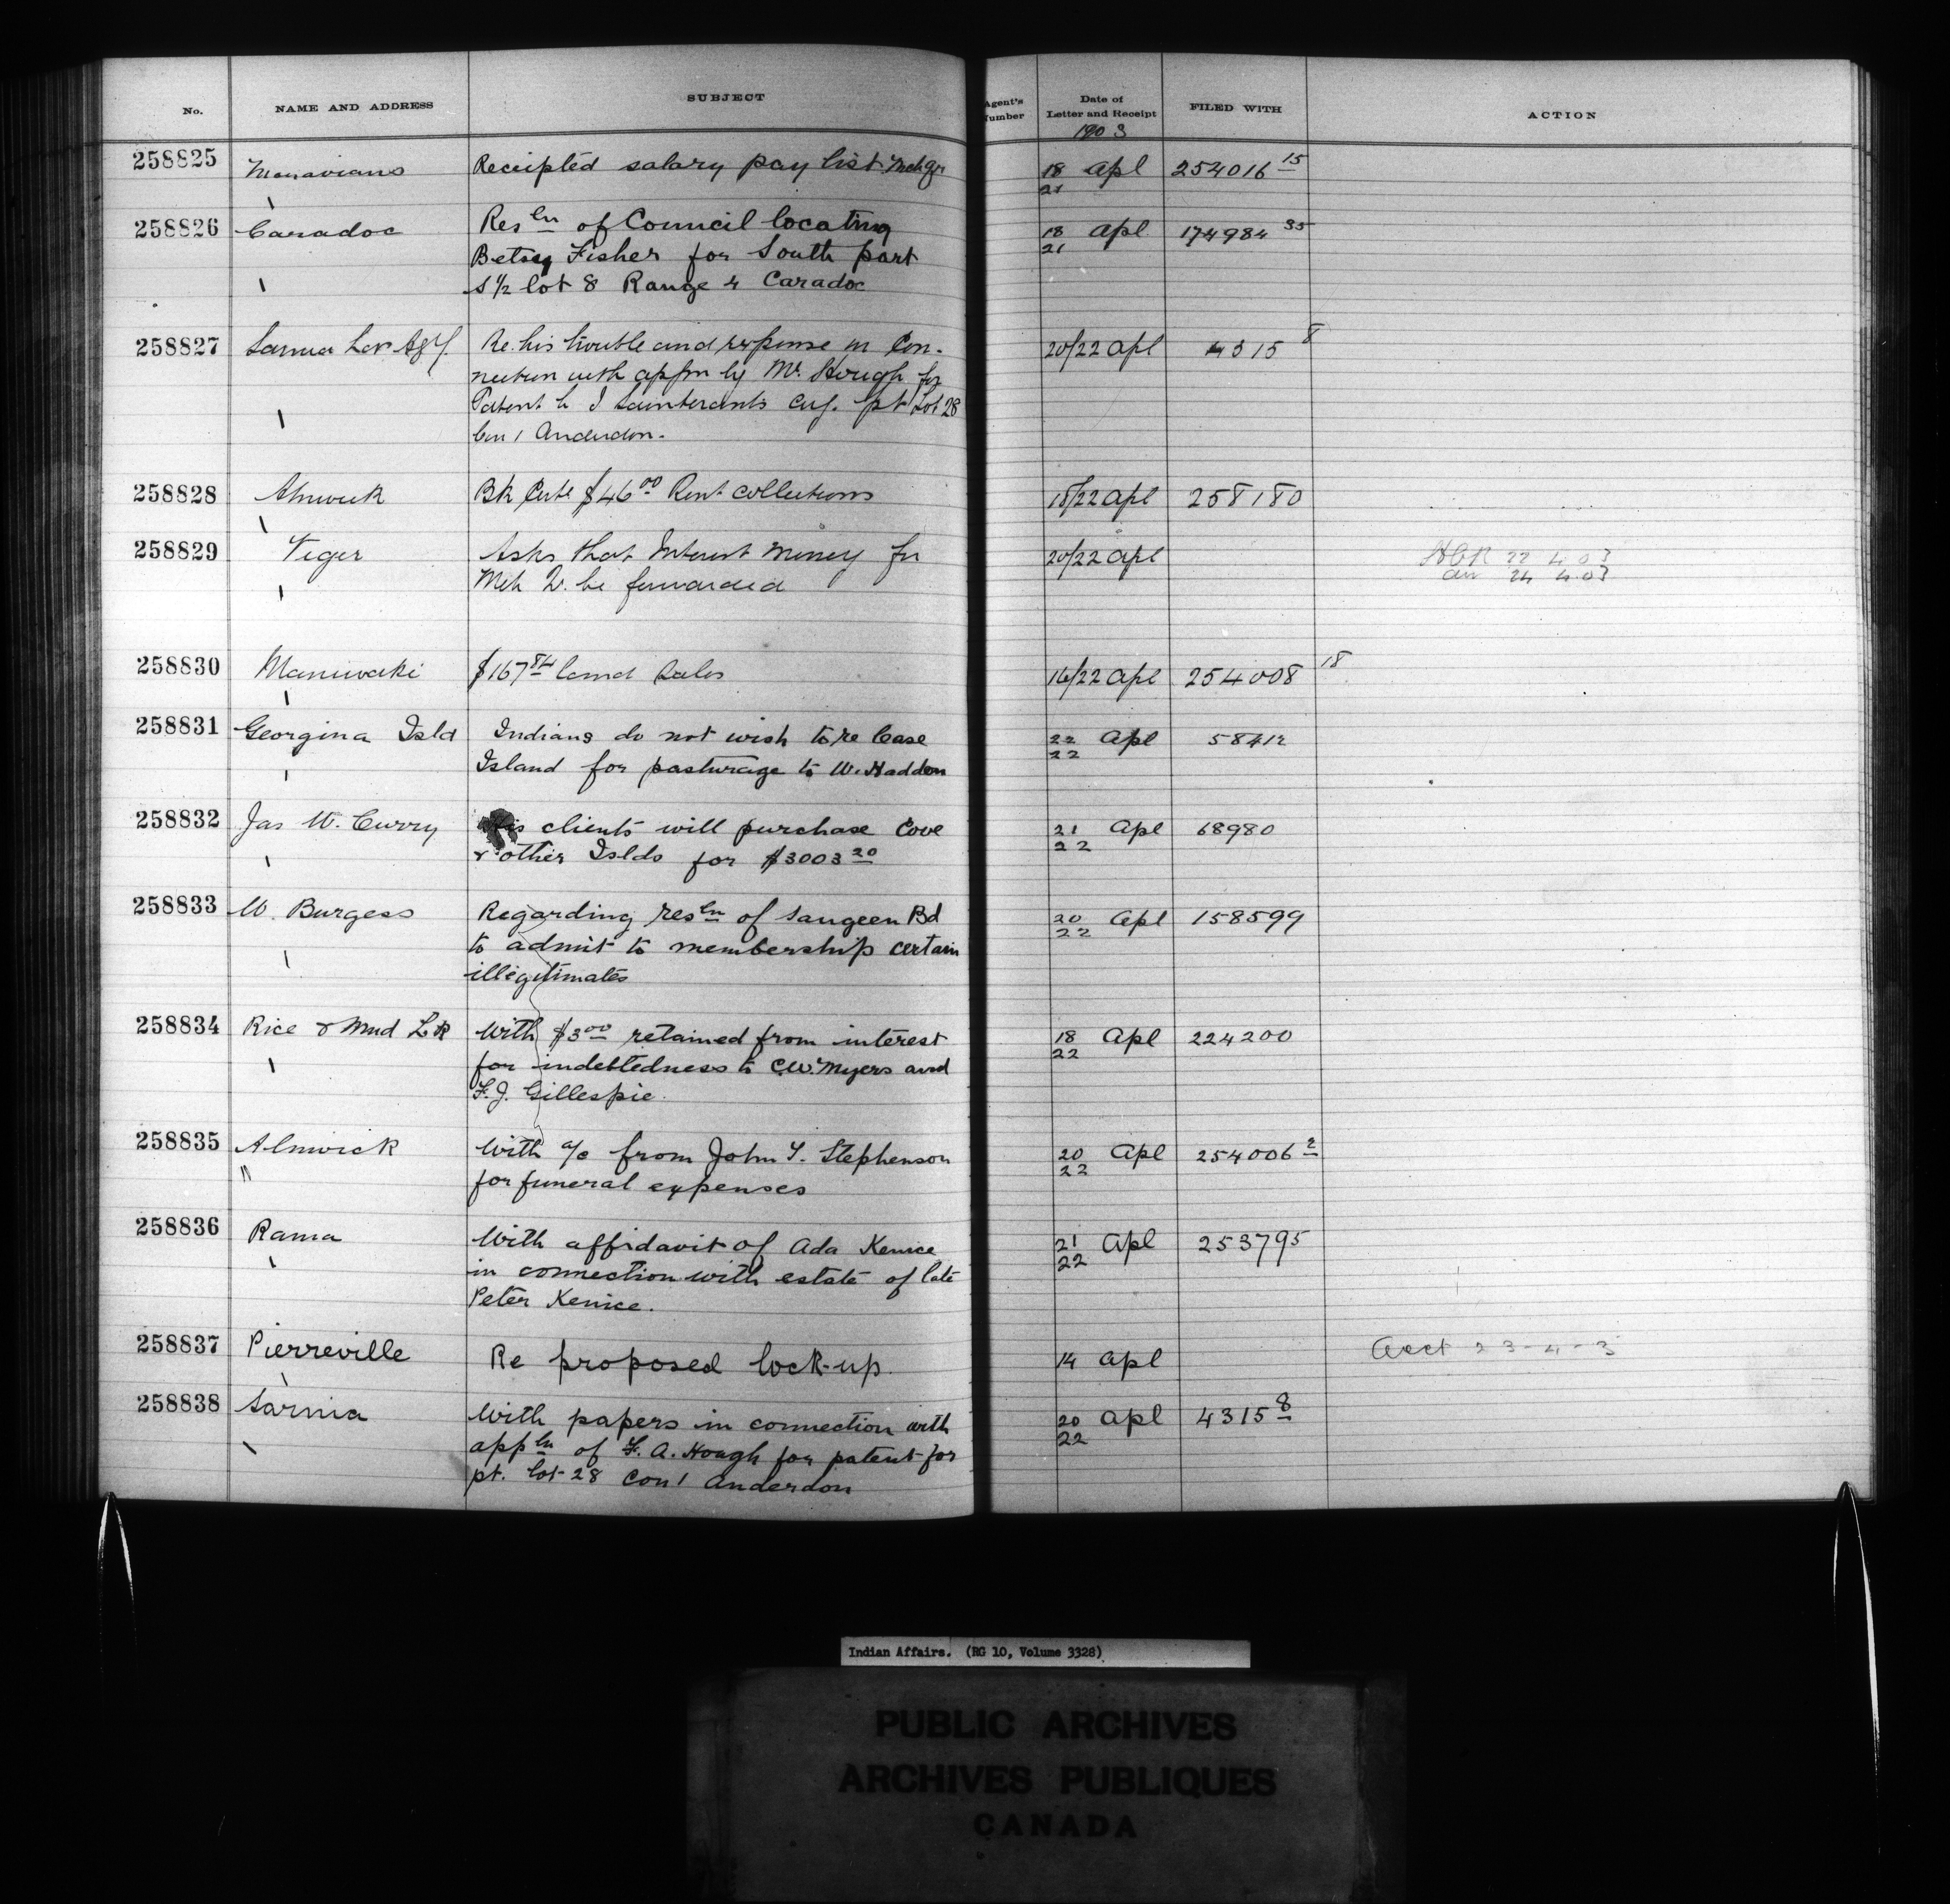 No. NAME AND ADDRESS SUBJECT Agent's Number Date of Letter and Receipt FILED WITH ACTION
1903
258825 Moravians Receipted salary pay list Mch qr 18/21 Apl 254016 15
258826 Caradoc Resln of Council locating 18/21 Apl 174984 35
Betsy Fisher for South part
S 1/2 lot 8 Range 4 Caradoc
258827 Sarnia Agy. Re. his trouble and expense in Con- 20/22 Apl 4315 8
nection with appln by Mr. Hough for
Patent to J cug. pt Lot 28
Con 1 Anderdon.
258828 Alnwick Bk Certe $46.00 Rent collections 18/22 Apl 258180
258829 Viger Asks that Interest money for 20/22 Apl 22 4 03
Mch be forwarded 24 4.03
258830 Maniwaki $167.84 land sales 16/22 Apl 254008 18
258831 Georgina Isld Indians do not wish to re lease 22/22 Apl 58412
Island for pasturage to W. Hadden
258832 Jas W. Curry His clients will purchase Cove 21/22 Apl 68980
& other Islds for $3003 20
258833 W. Burgess Regarding resln of Saugeen Bd 20/22 Apl 158599
to admit to membership certain
illegitimates
258834 Rice & Mud Lk With $3.00 retained from interest 18/22 Apl 224200
for indebtedness to C.W. Myers and
F. J. Gillespie.
258835 Alnwick With a/c from John T. Stephenson 20/22 Apl 254006 2
" for funeral expenses
258836 Rama With affidavit of Ada Kenice 21/22 Apl 253795
in connection with estate of late
Peter Kenice.
258837 Pierreville Re proposed lock-up. 14 Apl Acct 23-4-3
258838 Sarnia With papers in connection with 20/22 Apl 4315 8
appln of F. A. Hough for patent for
pt. lot 28 Con 1 Anderdon
Indian Affairs. (RG 10, Volume 3328)
PUBLIC ARCHIVES
ARCHIVES PUBLIQUES
CANADA